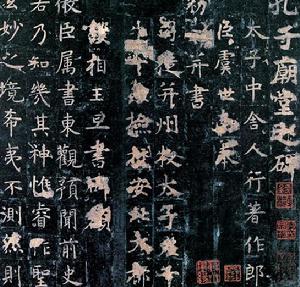 孔子廟堂之碑
太子中舍人行著作郎
臣虞世南奉
勑并書
司徒并州牧太子
相王旦書碑額
微臣属書東觀預聞前史
若乃知幾其神惟睿作聖
玄妙之境希夷不測然則